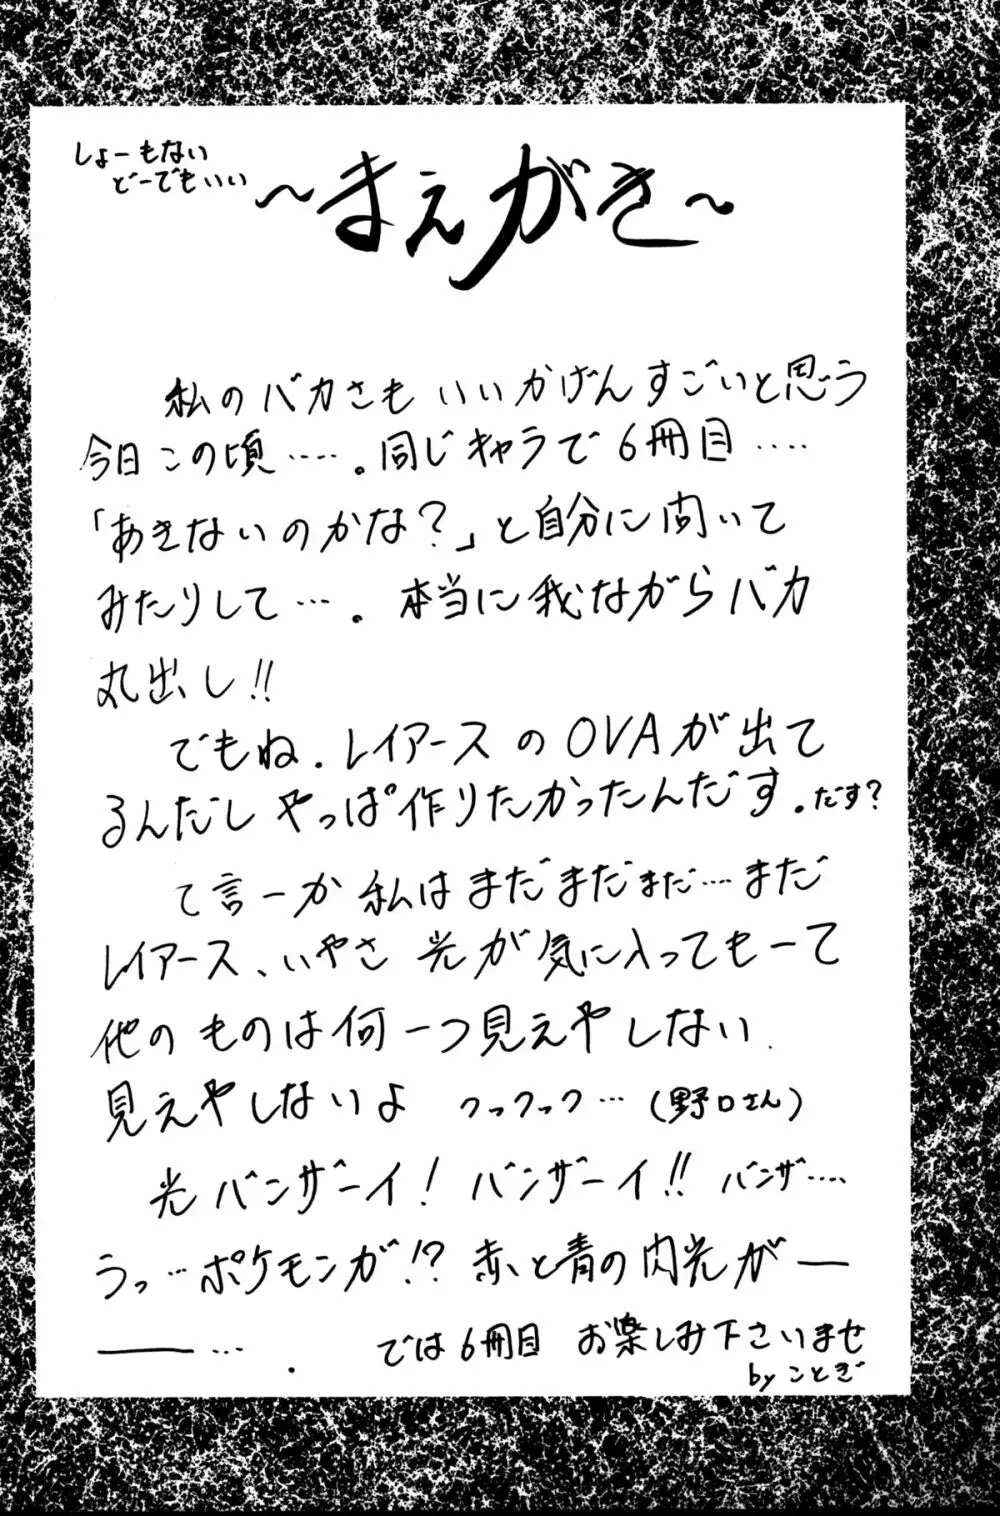 しょーもない
どーでもいい
～まえがき～
私のバカさもいいかげんすごいと思う
今日この頃……。同じキャラで6冊目……
「あきないのかな?」と自分に問いて
みたりして…。本当に我ながらバカ
丸出し!!
でもね．レイアースのOVAが出て
るんだしやっぱ作りたかったんだす。だす?
て言ーか私はまだまだまだ…まだ
レイアース、いやさ光が気に入ってもーて
他のものは何一つ見えやしない．
見えやしないよ クックック…(野口さん)
光バンザーイ! バンザーイ!! バンザ‥‥
うっ…ポケモンが!? 赤と青の閃光が―
――…．
では6冊目 お楽しみ下さいませ
by ことぎ